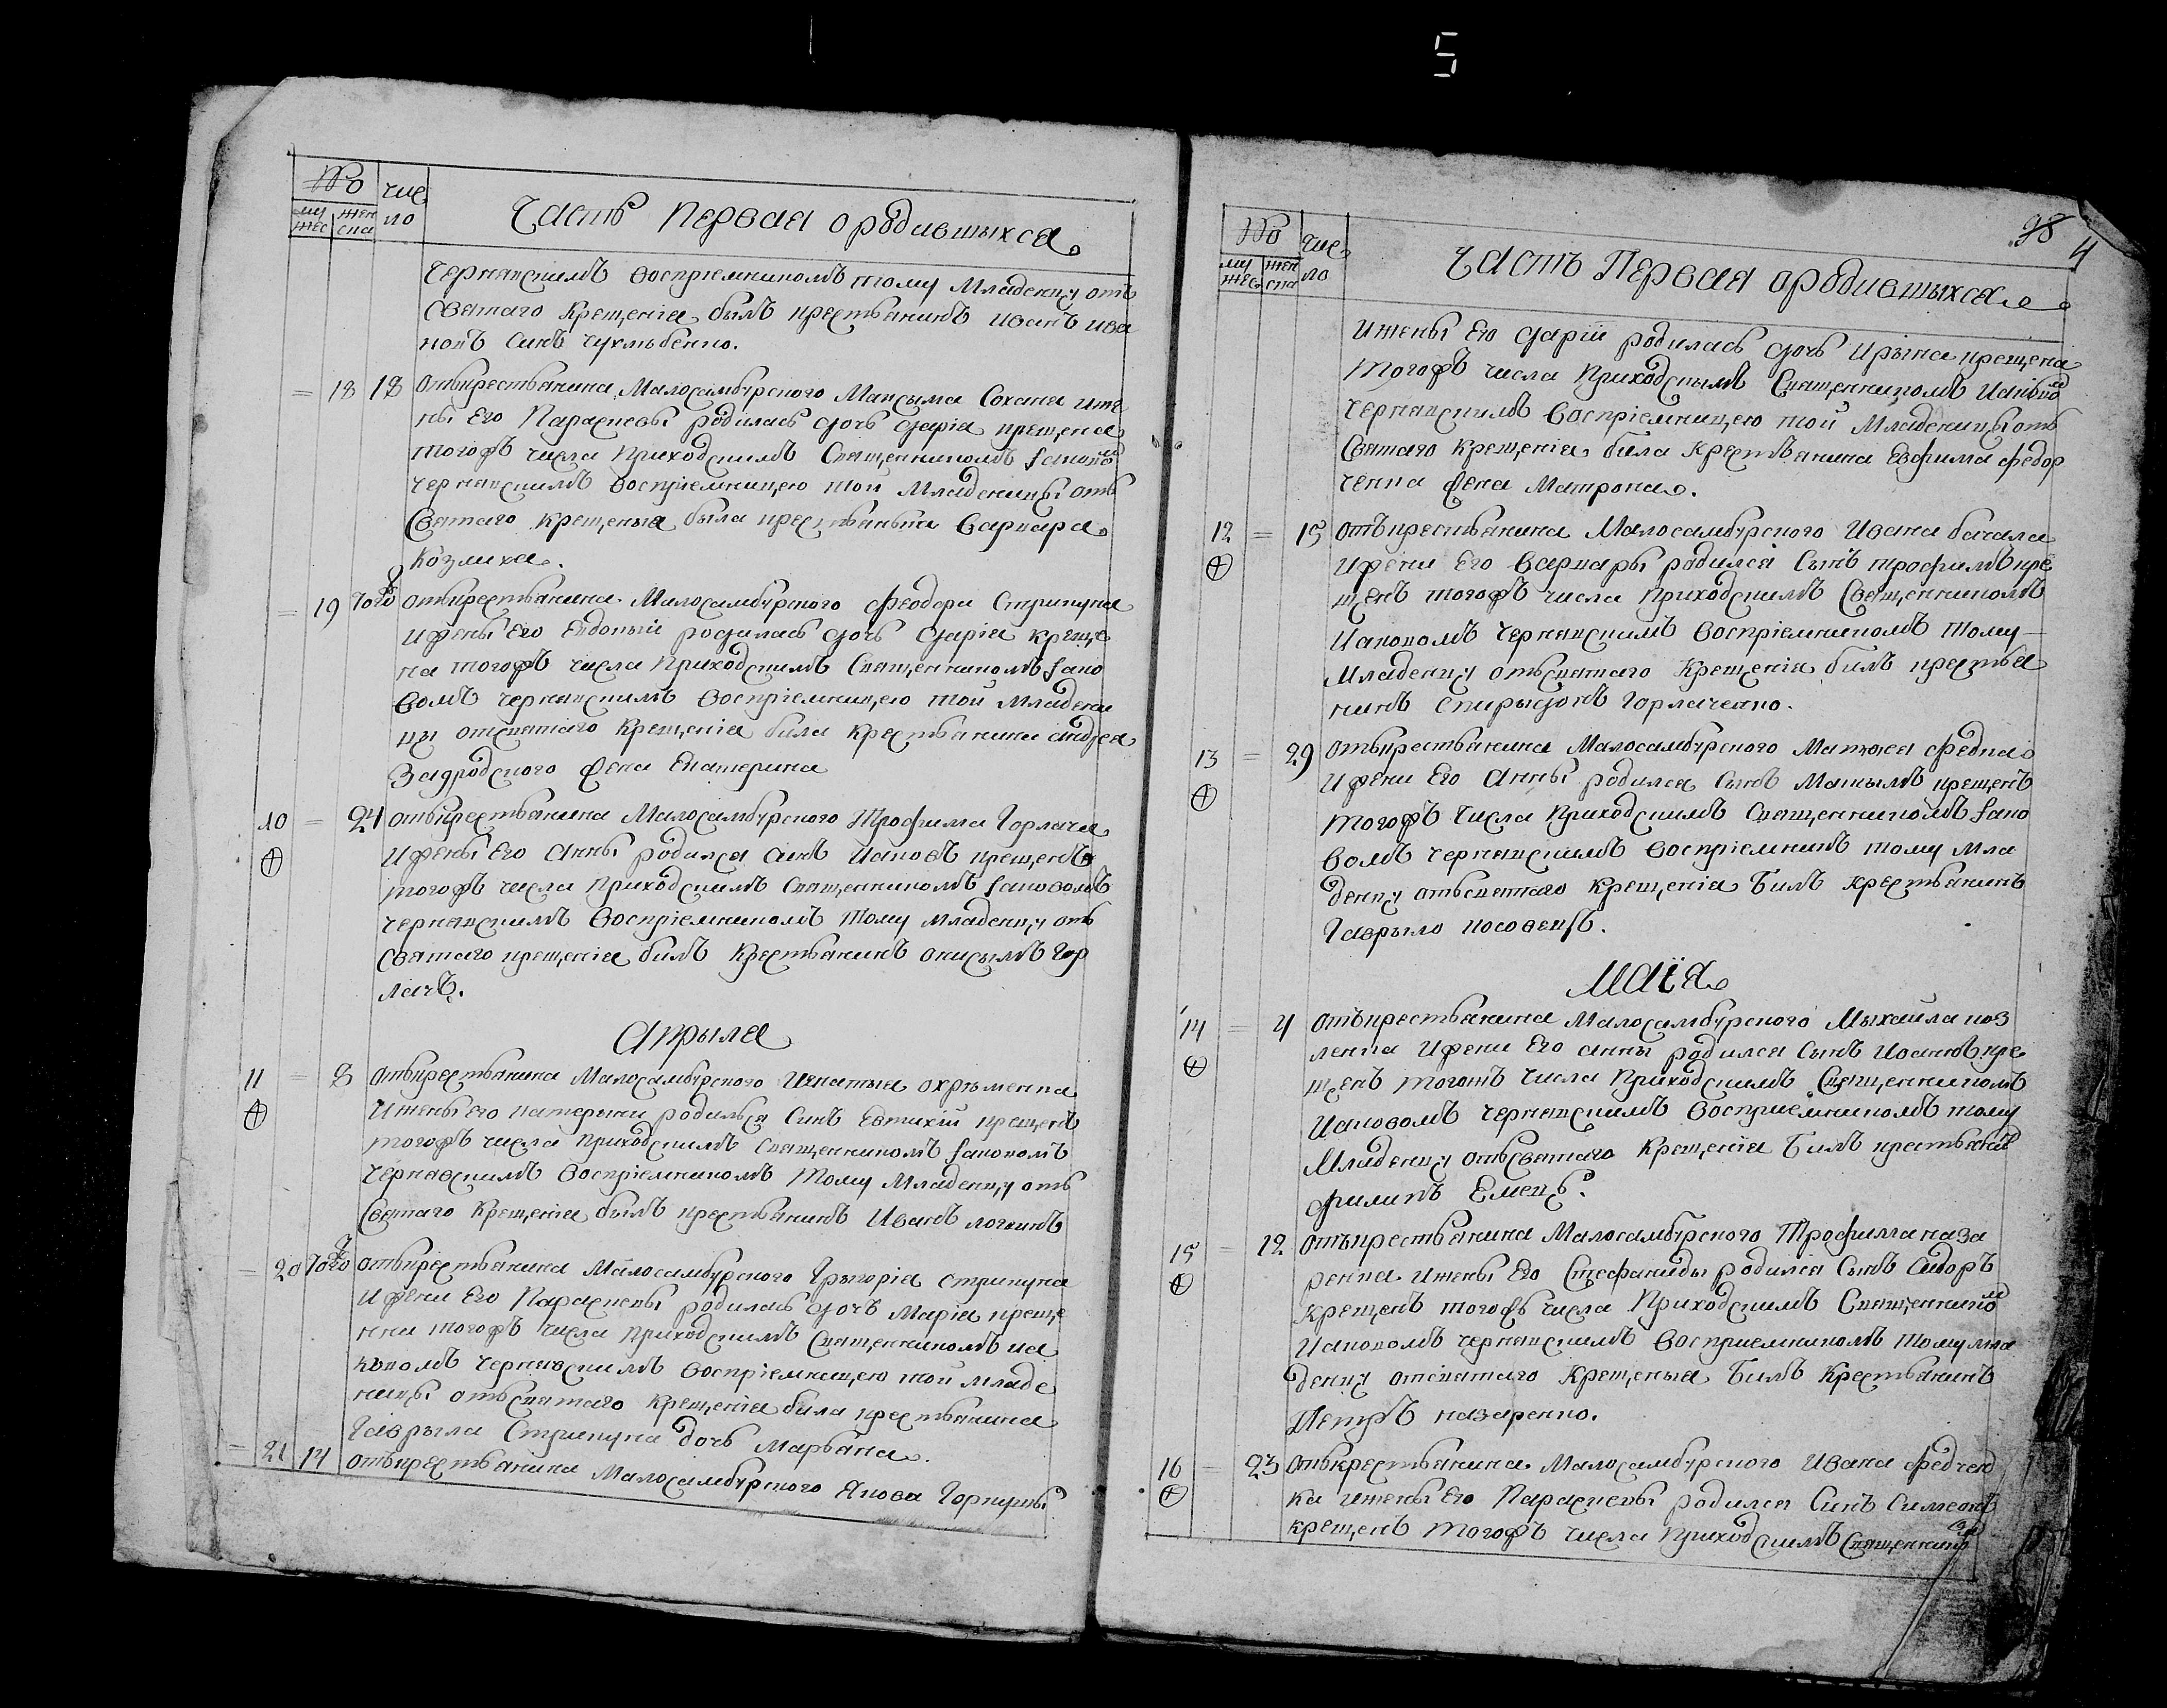 5
№ чис
му жен ло
жес ска
Часть Первая о родившихся
Чернавскимъ воспріемникомъ тому Младенцу отъ
Святаго Крещенія былъ крестьянинъ Иванъ Ива
новъ синъ
= 18 18 Отъ крестьянина Малосамбурского Максыма Сохана и же
ны Его Параскевы родилась дочь Дарія крещена
тогожъ числа Приходскимъ Священникомъ Іаково
Чернавскимъ воспріемницею той Младеницы отъ
Святаго Крещеныя была крестьянка Варвара
Козлиха.
= 19 того Отъ крестьянина Малосамбурского Феодора Стрипуна
и жены Его Евдокыи родилась дочь Дарія креще
на тогожъ числа Приходскимъ Священникомъ Іако
вомъ Чернавскимъ воспріемницею той Младени
цы отсвятаго Крещенія била Крестьянина андрея
Задродского жена Екатерина
10 = 24 Отъ крестьянина Малосамбурского Трофима Горлача
и жены Его Анны родился синъ Иаковъ крещенъ
тогожъ числа Приходскимъ Священникомъ Іаковомъ
Чернавскимъ воспріемникомъ тому младенцу отъ
Святаго крещенія билъ Крестьянинъ онисымъ Гор
лачъ.
Апрыля
11 = 8 Отъ крестьянина Малосамбурского Игнатыя Охрѣменка
и жены его катерыни родилься Синъ Евтихій крещенъ
тогожъ числа Приходскимъ Священникомъ Іаковомъ
Чернавскимъ воспріемникомъ тому Младенцу отъ
Святаго Крещенія былъ крестьянинъ Иванъ логвинъ
= 20 того Отъ крестьянина Малосамбурского Грыгорія Стрипуна
и жени Его Параскевы родилась дочъ Марія креще
нна тогожъ числа Приходскимъ Священникомъ Иа
ковомъ Чернавскимъ воспріемницею той младе
ницы отъ святаго Крещенія била крестьянина
Гаврыла Стрипуна дочь Марьяна.
= 21 14 Отъ крестьянина Малосамбурского Якова Горпушы
98 4
№ чис
му жен ло
жес ска
Часть Первая о родившихся
и жены Его Даріи родилась дочь Ирына крещена
тогожъ числа Приходскымъ Священникомъ Иаково
Чернавскимъ воспріемницею той Младеницы отъ
Святаго Крещенія била Крестьянина Евфима Федор
ченка жена Матрона.
12 = 15 Отъ крестьянина Малосамбурского Ивана бачала
и жени Его Варвары родился Сынъ трофимъ кре
щенъ тогожъ числа Приходскимъ Священникомъ
Иаковомъ Чернавскимъ воспріемникомъ тому
Младенцу отъ святаго Крещенія билъ крестья
нинъ Спирыдонъ Горлаченко.
13 = 29 Отъ крестьянина Малосамбурского Матвея Федка
и жени Его Анны родился Сынъ крещенъ
тогожъ числа Приходскимъ Священникомъ Іако
вомъ Чернавскимъ воспріемникъ тому мла
денцу отъ святаго Крещенія билъ крестьянинъ
Гаврыло косовецъ.
Маія
14 = 4 Отъ крестьянина Малосамбурского Мыхайла коз
ленка и жени Его анны родился Сынъ Иоаннъ кре
щенъ тогожъ числа Приходскимъ Священникомъ
Иаковомъ Чернавскимъ воспріемникомъ тому
Младенцу отъ Святаго Крещенія билъ крестьянинъ
филипъ Емецъ.
15 = 12 Отъ крестьянина Малосамбурского Трофима наза
ренка и жены Его Стефаниды родился Сынъ Сидоръ
крещенъ тогожъ числа Приходскимъ Священнико
Иаковомъ Чернавскимъ воспріемникомъ тому мла
денцу отсвятаго Крещеныя билъ Крестьянинъ
Петръ назаренко.
16 = 23 Отъ крестьянина Малосамбурского Ивана Федчен
ка и жены Его Параскевы родился Синъ Симеонъ
крещенъ тогожъ числа Приходскимъ Священнико